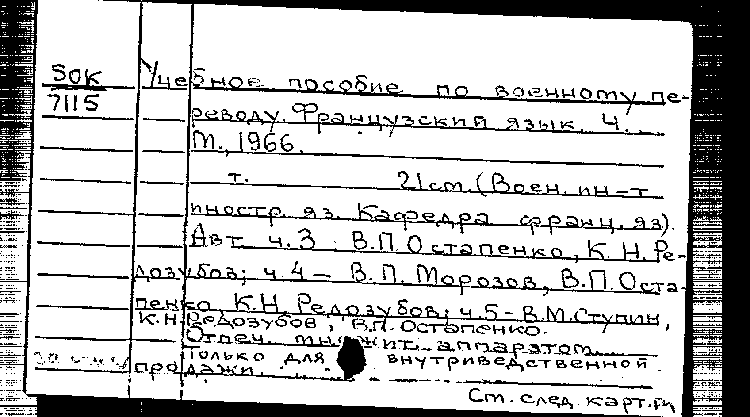 50К
7115
Учебное пособие по военному пе-
реводу. Французский язык. Ч.
М., 1966.
т. 21 см. (Воен. ин-т
иностр. яз. Кафедра франц. яз).
Авт. ч. 3: В.П. Остапенко, К.Н. Ре-
дозубов; ч. 4 - В.П. Морозов, В.П. Оста-
пенко, К.Н. Редозубов; ч. 5 - В.М. Ступин,
К.Н. Редозубов, В.П. Остапенко.
Отпеч. множит. аппаратом.
Только для внутриведственной
продажи.
См. след. карт.